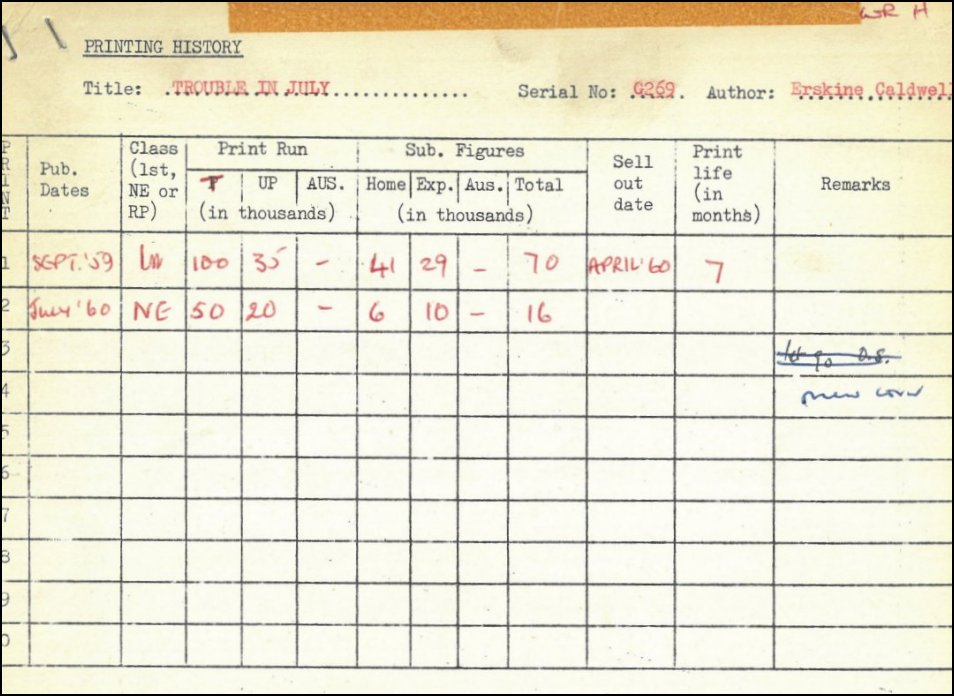 WR H
PRINTING HISTORY
Title: TROUBLE IN JULY Serial No: G269. Author: Erskine Caldwell
PRINT Pub. Dates Class (1st, NE or RP) Print Run Sub. Figures Sell out date Print life (in months) Remarks
T UP AUS. Home Exp. Aus. Total
(in thousands) (in thousands)
1 SEPT.'59 100 35 - 41 29 - 70 APRIL'60 7
2 July '60 NE 50 20 - 6 10 - 16
3 let go O.S.
4 new cover
5
6
7
8
9
0